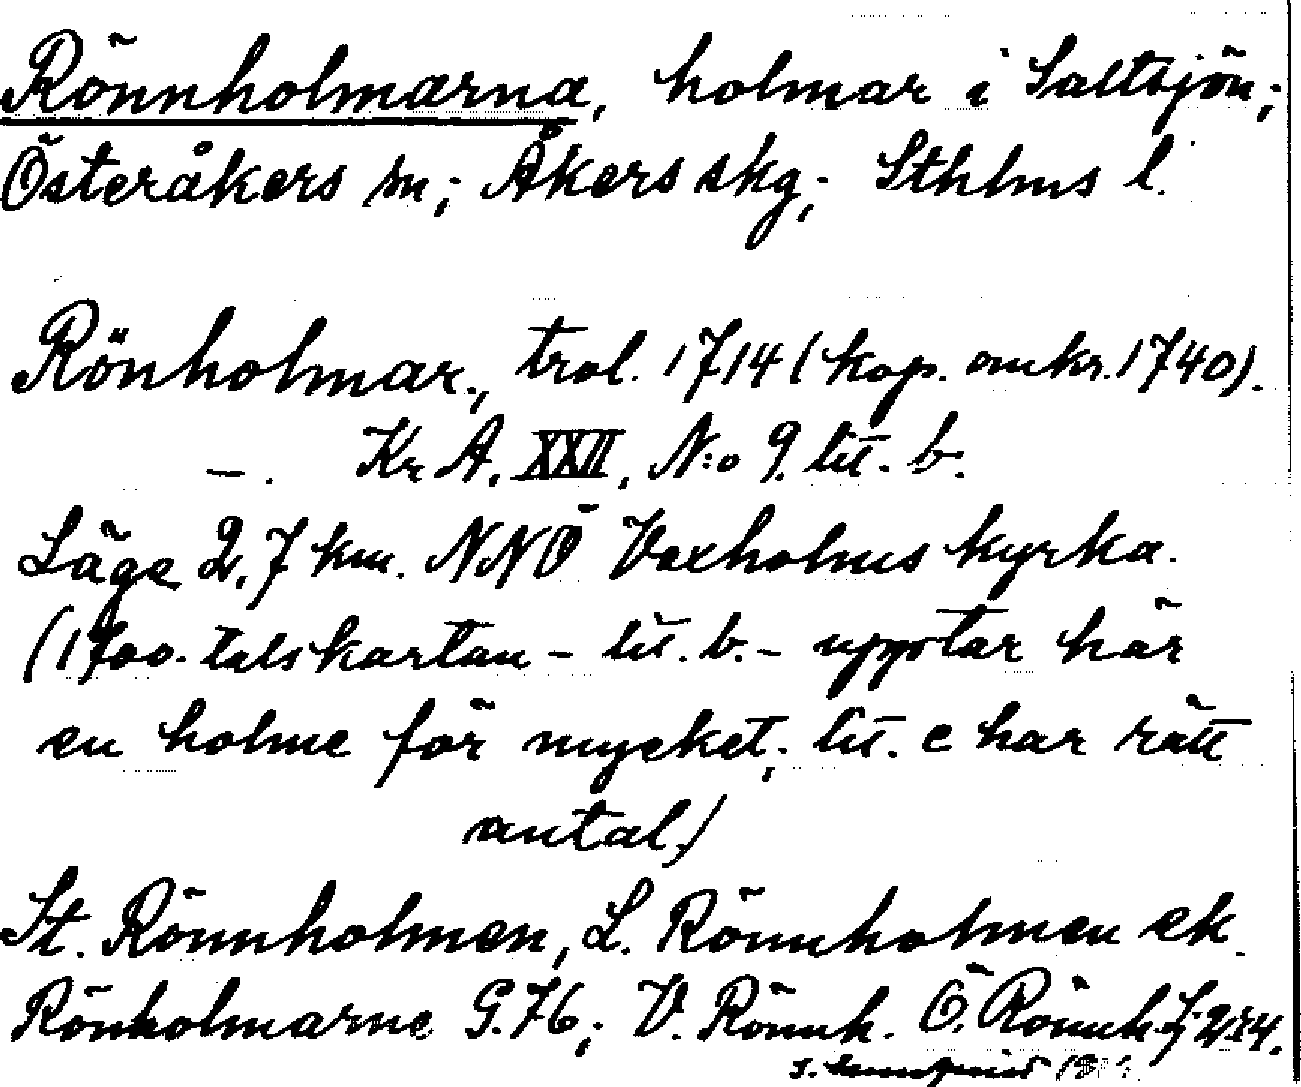 Rönnholmarna, holmar i Saltsjön;
Österåkers sn; Åkers skg; Sthlms l.
Rönholmar, trol. 1714 (kop. omkr. 1740).
—. Kr A. XXII, N:o 9. lit. b.
Läge 2,7 km. NNÖ Vaxholms kyrka.
(1700-talskartan - lit. b. - upptar här
en holme för mycket; lit. c har rätt
antal.)
St. Rönnholmen, L. Rönnholmen ek.
Rönholmarne G. 76; V. Rönnh. Ö. Rönnh.